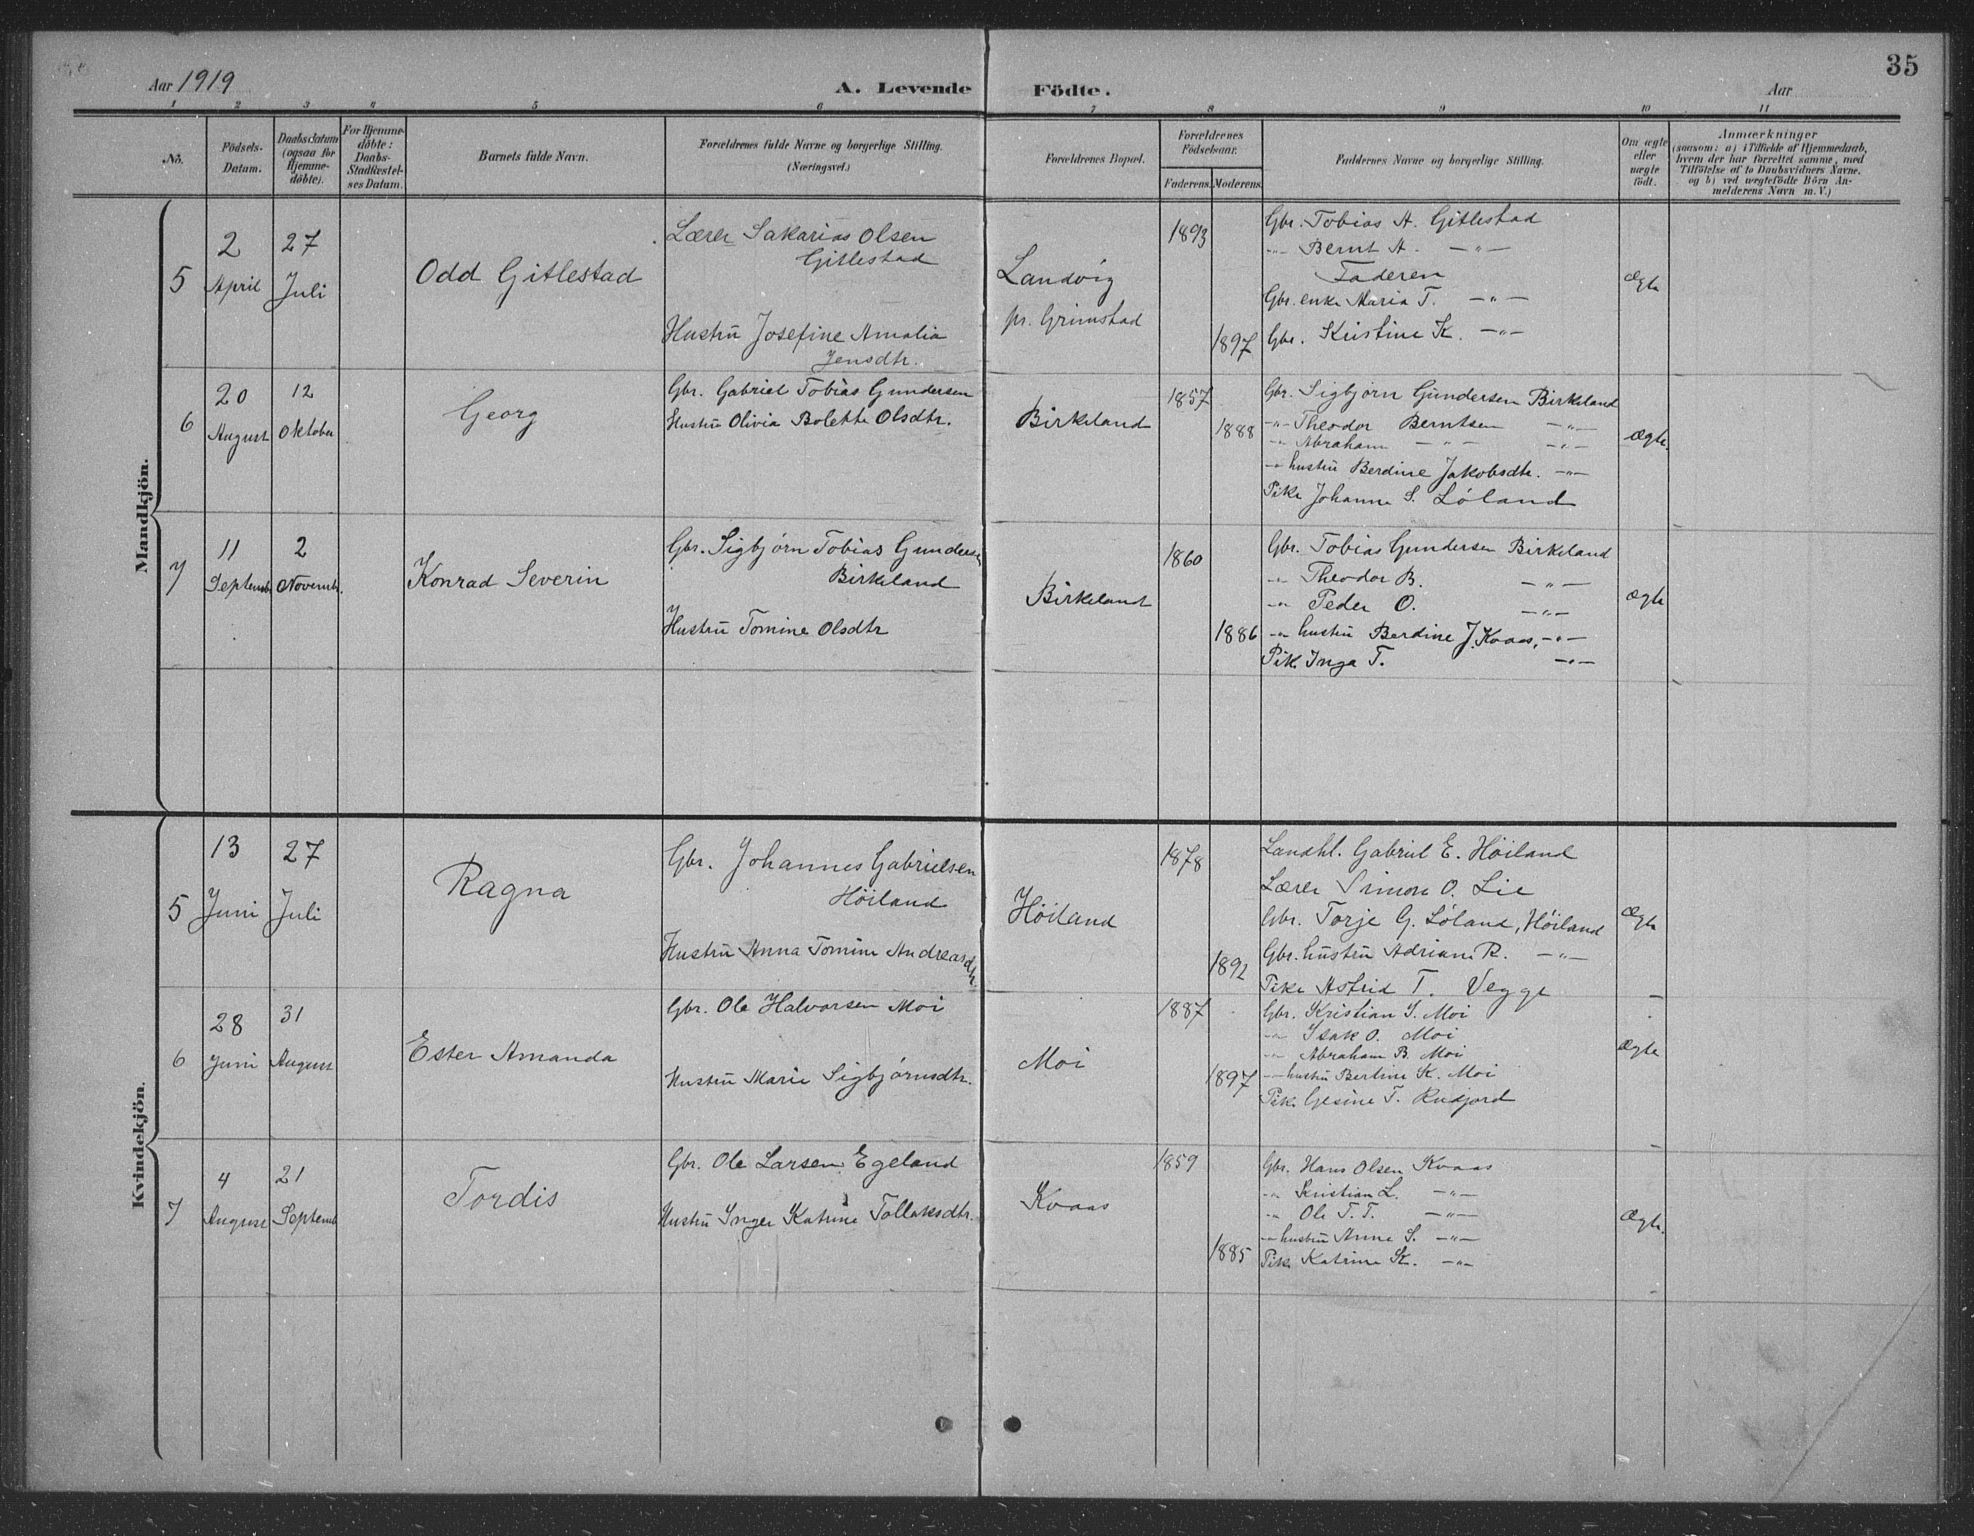 35
Aar 1919
A. Levende Födte.
Aar
1 2 3 4 5 6 7 8 9 10 11
No.
Födsels-
Datum.
Daabsdatum
(ogsaa for
Hjemme-
döbte).
For Hjemme-
döbte:
Daabs-
Stadfæstel-
ses Datum.
Barnets fulde Navn.
Forældrenes fulde Navne og borgerlige Stilling.
(Næringsvei.)
Forældrenes Bopæl.
Forældrenes
Födselsaar.
Faderens. Moderens.
Faddernes Navne og borgerlige Stilling.
Om ægte
eller
uægte
födt.
Anmærkninger
(saasom: a) i Tilfælde af Hjemmedaab,
hvem der har forrettet samme, med
Tilföielse af to Daabsvidners Navne.
og b) ved uægtefödte Börn An-
melderens Navn m. V.)
Mandkjön.
5
2
April
27
Juli
Odd Gitlestad
Lærer Sakarias Olsen
Gitlestad
Hustru Josefine Amalia
Jensdtr.
Landvig
pr. Grimstad
1893
1897
Gbr. Tobias A. Gitlestad
-"- Bernt A. -"-
Faderen
Gbr. enke Maria T. -"-
Gbr. Kristine K. -"-
Ægte
6
20
August
12
Oktober
Georg
Gbr. Gabriel Tobias Gundersen
Hustru Olivia Bolette Olsdtr.
Birkeland
1857
1888
Gbr. Sigbjørn Gundersen Birkeland
-"- Theodor Berntsen -"-
-"- Abraham -"- -"-
-"- hustru Berdine Jakobsdtr. -"-
Pike Johanne S. Løland
Ægte.
7
11
Septemb.
2
Novemb.
Konrad Severin
Gbr. Sigbjørn Tobias Gundersen
Birkeland
Hustru Tomine Olsdtr
Birkeland
1860
1886
Gbr. Tobias Gundersen Birkeland
-"- Theodor B. -"-
-"- Peder O. -"-
-"- hustru Berdine J. Kvaas, -"-
Pik. Inga T. -"-
Ægte
Kvindekjön.
5
13
Juni
27
Juli
Ragna
Gbr. Johannes Gabrielsen
Høiland
Hustru Anna Tomine Andreasdtr.
Høiland
1878
1892
Landhl. Gabriel E. Høiland
Lærer Simon O. Lie
Gbr. Torje G. Løland, Høiland
Gbr. hustru Adriane R. -"-
Pike Astrid T. Vegge
Ægte
6
28
Juni
31
August
Ester Amanda
Gbr. Ole Halvorsen Moi
Hustru Marie Sigbjørnsdtr.
Moi
1887
1897
Gbr. Kristian S. Moi
-"- Isak O. Moi
-"- Abraham B. Moi
-"- hustru Bertine K. Moi
Pik. Gesine T. Rudjord
Ægte
7
4
August
21
Septemb
Tordis
Gbr. Ole Larsen Egeland
Hustru Inger Katrine Tollaksdtr.
Kvaas
1859
1885
Gbr. Hans Olsen Kvaas
-"- Kristian L. -"-
-"- Ole T. T. -"-
-"- hustru Anne S. -"-
Pik. Katrine K. -"-
Ægte.